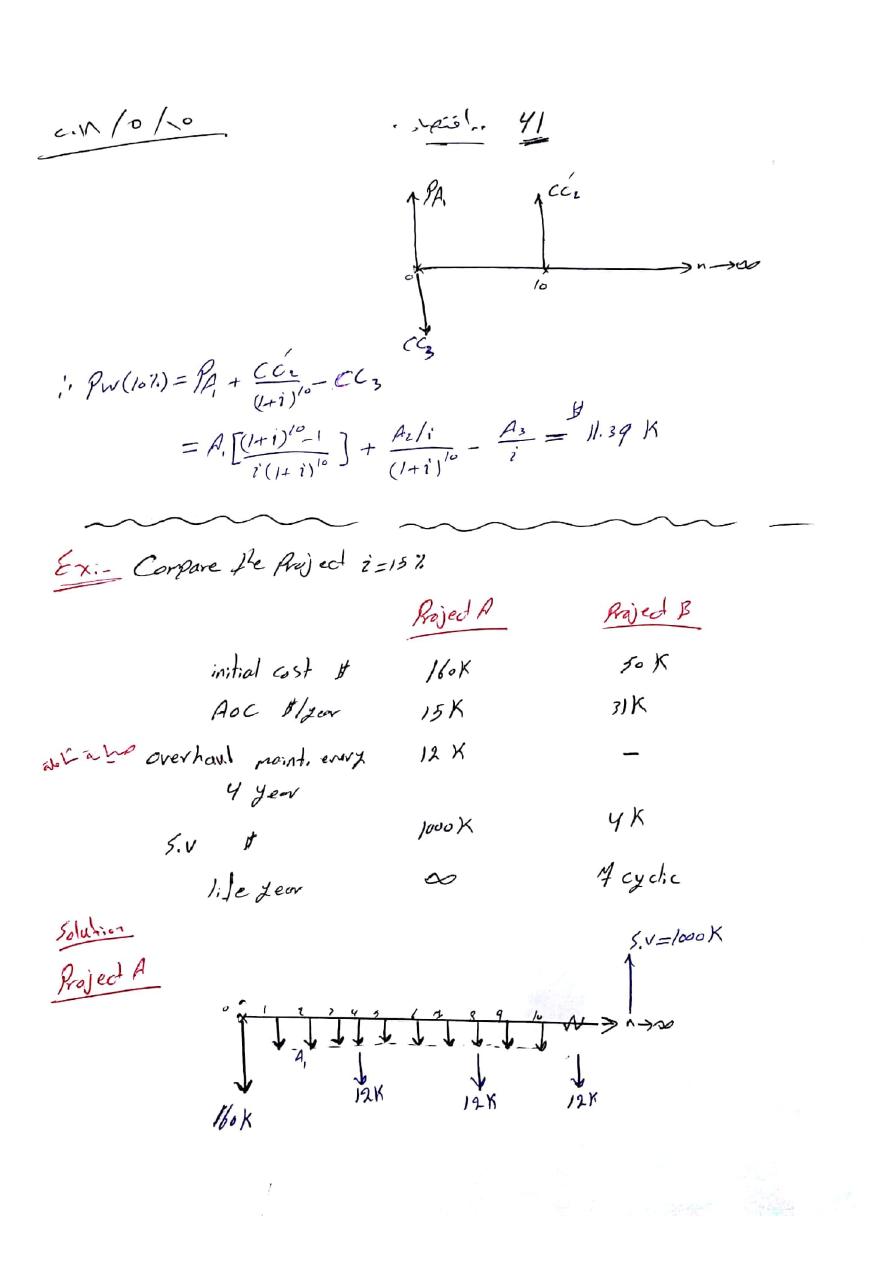 41 اقتصاد
PA₁
CC₂′
0
10
n→∞
CC₃
∴ PW(10%) = PA₁ + CC₂′/(1+i)¹⁰ - CC₃
= A₁[((1+i)¹⁰-1)/(i(1+i)¹⁰)] + (A₂/i)/(1+i)¹⁰ - A₃/i = $ 11.39 K
Ex:- Compare the Project i=15%
Project A Project B
initial cost $ 160K 50 K
AOC $/year 15K 31K
overhaul maint. every 12 K -
4 year
S.V $ 1000K 4K
life year ∞ 7 cyclic
Solution
S.V=1000K
Project A
0 1 2 3 4 5 6 7 8 9 10 n→∞
A₁
12K 12K 12K
160K